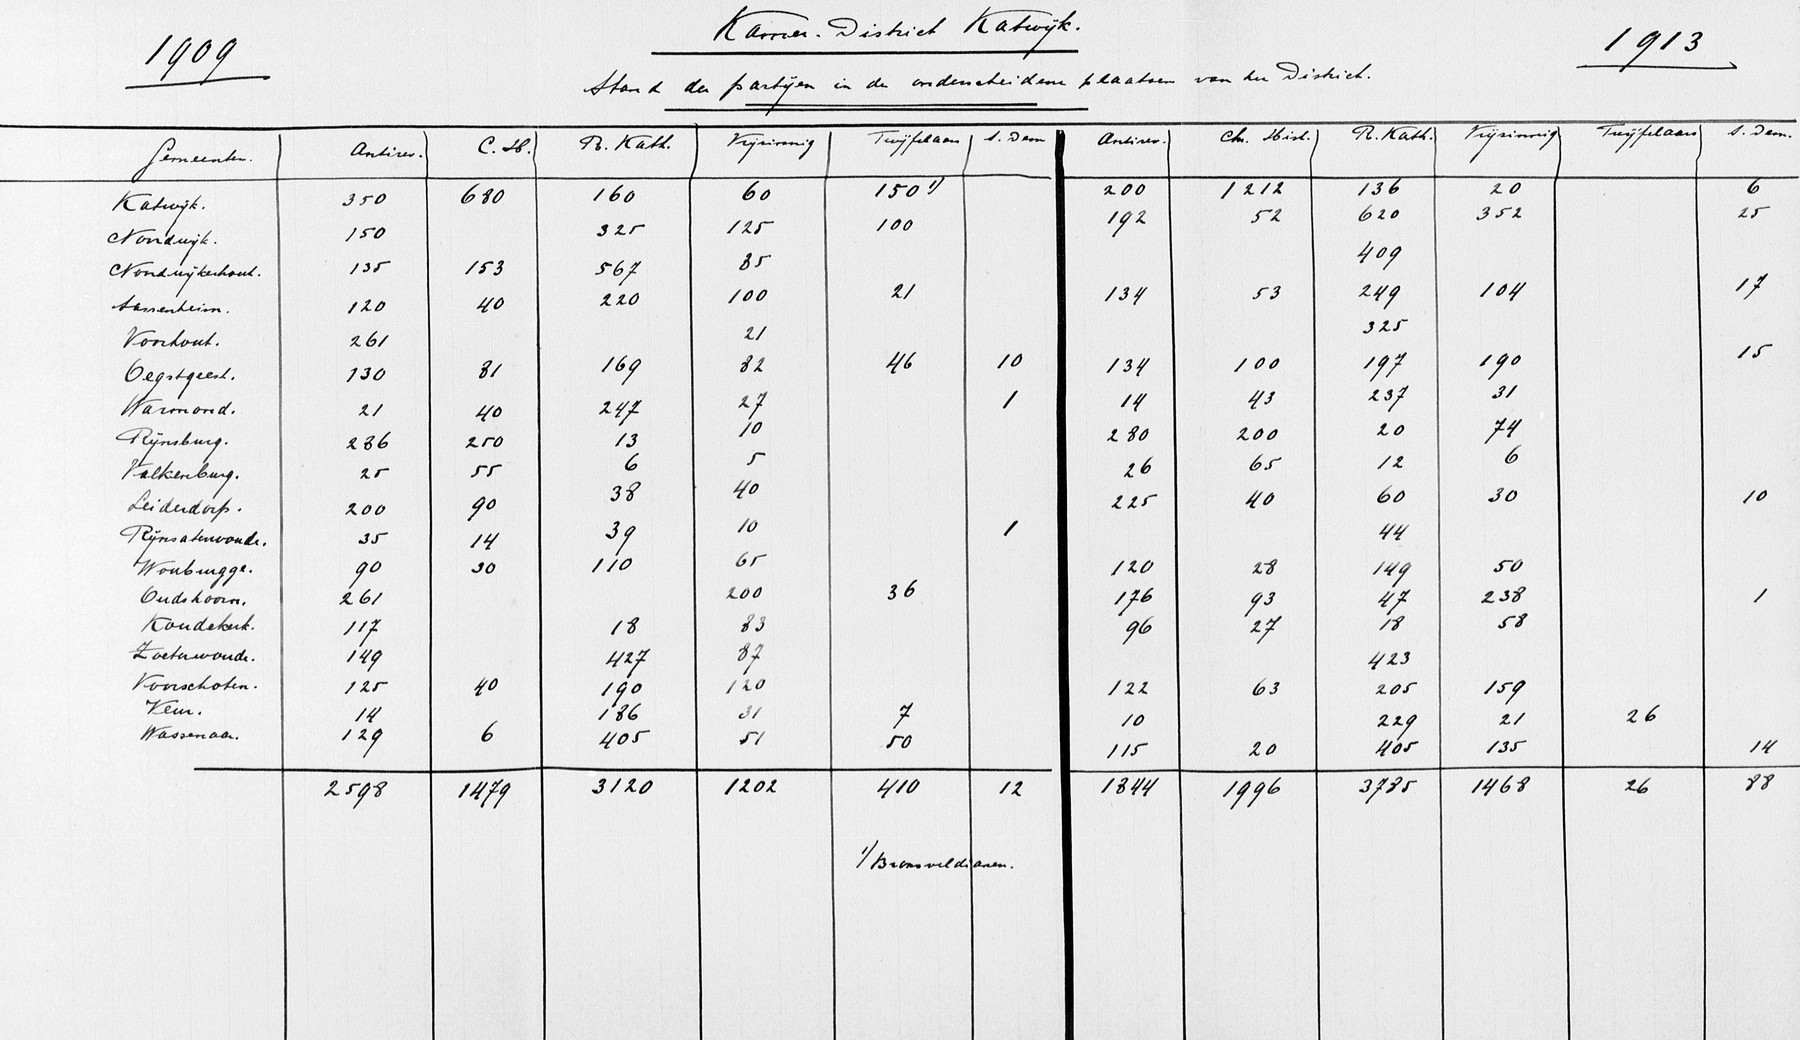 1909
Kamer-District Katwijk.
1913
Stand der partijen in de onderscheidene plaatsen van het District.
Gemeenten. Antirev. C. H. R. Kath. Vrijzinnig Twijfelaars s. Dem Antirev. Chr. Hist. R. Kath. Vrijzinnig Twijfelaars s. Dem.
Katwijk. 350 680 160 60 150 1) 200 1212 136 20 6
Noordwijk. 150 325 125 100 192 52 620 352 25
Noordwijkerhout. 135 153 567 85 409
Sassenheim. 120 40 220 100 21 134 53 249 104 17
Voorhout. 261 21 325
Oegstgeest. 130 81 169 82 46 10 134 100 197 190 15
Warmond. 21 40 247 27 1 14 43 237 31
Rijnsburg. 286 250 13 10 280 200 20 74
Valkenburg. 25 55 6 5 26 65 12 6
Leiderdorp. 200 90 38 40 225 40 60 30 10
Rijnsaterwoude. 35 14 39 10 1 44
Woubrugge. 90 30 110 65 120 28 149 50
Oudshoorn. 261 200 36 176 93 47 238 1
Koudekerk. 117 18 83 96 27 18 58
Zoeterwoude. 149 427 87 423
Voorschoten. 125 40 190 120 122 63 205 159
Veur. 14 186 31 7 10 229 21 26
Wassenaar. 129 6 405 51 50 115 20 405 135 14
2598 1479 3120 1202 410 12 1844 1996 3785 1468 26 88
1) Bronsveldianen.